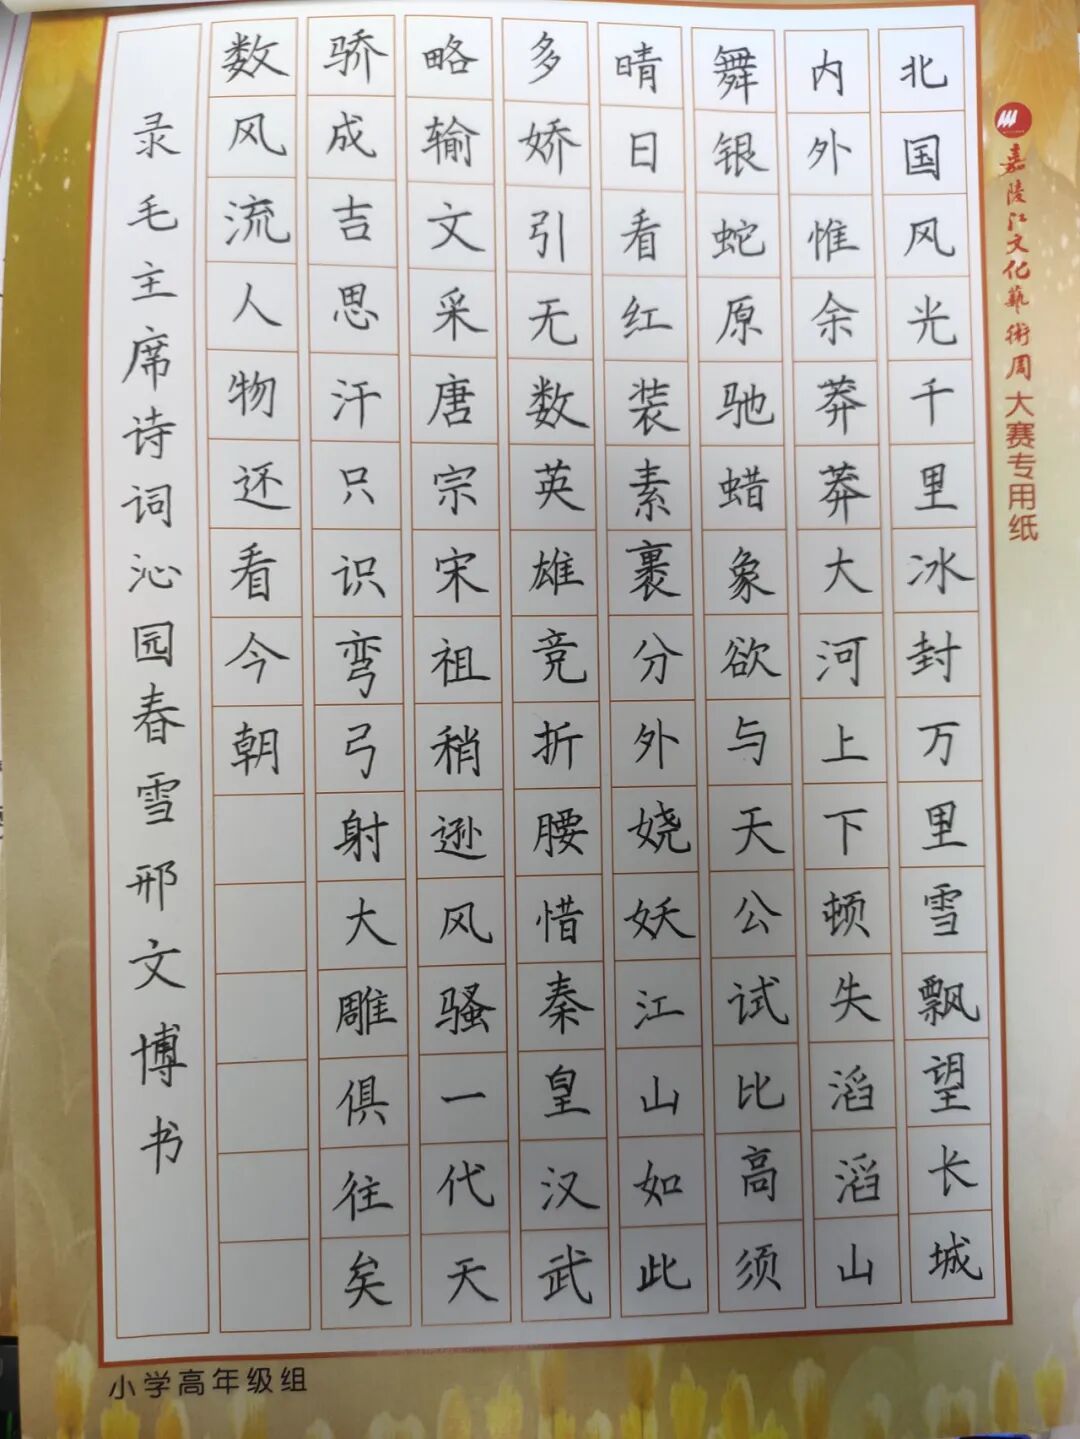 北国风光千里冰封万里雪飘望长城
内外惟余莽莽大河上下顿失滔滔山
舞银蛇原驰蜡象欲与天公试比高须
晴日看红装素裹分外娆妖江山如此
多娇引无数英雄竞折腰惜秦皇汉武
略输文采唐宗宋祖稍逊风骚一代天
骄成吉思汗只识弯弓射大雕俱往矣
数风流人物还看今朝
录毛主席诗词沁园春雪邢文博书
嘉陵江文化艺術周大赛专用纸
小学高年级组